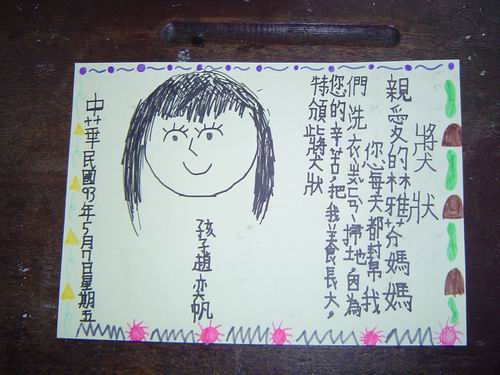 獎狀
親愛的林雅芬媽媽
您每天都幫我
們洗衣掃地因為
您的辛苦把我養長大，
特頒此獎狀
孩子趙奕帆
中華民國93年5月7日星期五